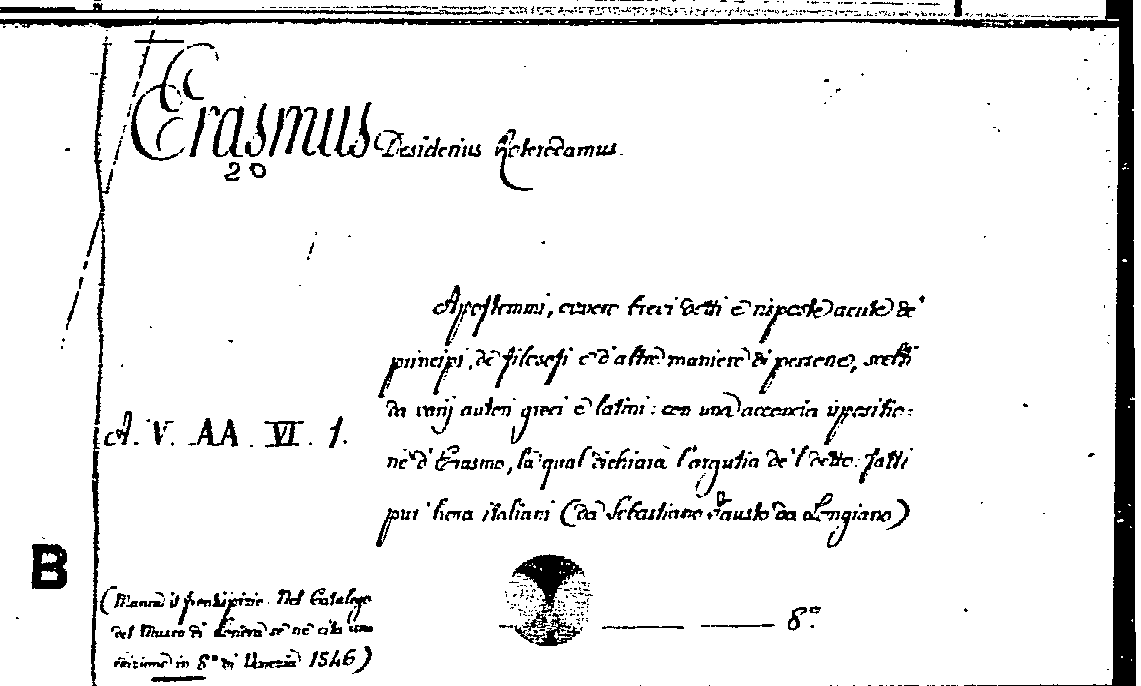 Erasmus Desiderius Roterodamus.
20
Apoftemmi, ovvero brevi detti e risposte acute de'
principi, de filosofi e d'altre maniere di persone, scelti
da varij autori greci e latini: con una accencia isposizio:
A. V. AA. VI. 1.
ne d'Erasmo, la qual dichiara l'argutia de'l detto. fatti
puri hora italiani (da Sebastiano Fausto da Longiano)
B
(Manca il frontispizio. Nel Catalogo
del Museo di Londra se ne cita una
edizione in 8° di Venezia 1546)
8°.